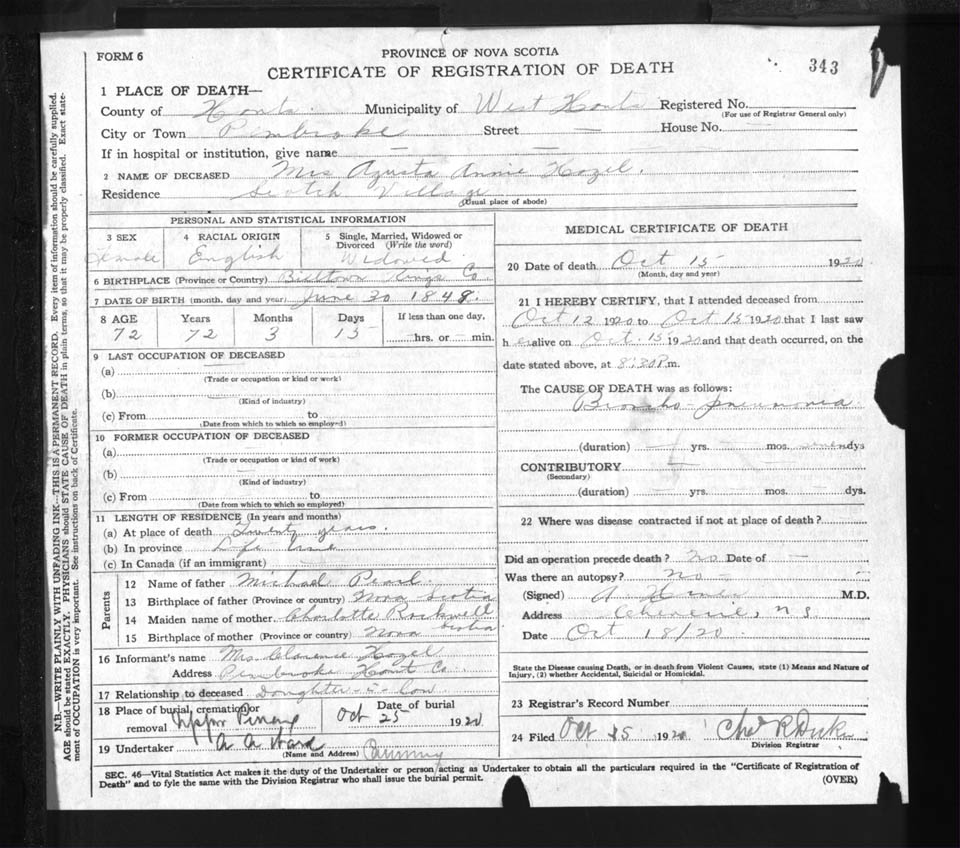 N.B.—WRITE PLAINLY WITH UNFADING INK—THIS IS A PERMANENT RECORD. Every item of information should be carefully supplied.
AGE should be stated EXACTLY. PHYSICIANS should STATE CAUSE OF DEATH in plain terms, so that it may be properly classified. Exact state-
ment of OCCUPATION is very important. See instructions on back of Certificate.
FORM 6
PROVINCE OF NOVA SCOTIA
CERTIFICATE OF REGISTRATION OF DEATH
343
1 PLACE OF DEATH—
County of Hants Municipality of West Hants Registered No.
(For use of Registrar General only)
City or Town Pembroke Street — House No. —
If in hospital or institution, give name — —
2 NAME OF DECEASED Mrs Agusta Annie Hazel.
Residence Scotch Village
(Usual place of abode)
PERSONAL AND STATISTICAL INFORMATION
3 SEX
Female
4 RACIAL ORIGIN
English
5 Single, Married, Widowed or
Divorced (Write the word)
Widowed
6 BIRTHPLACE (Province or Country) Billtown Kings Co
7 DATE OF BIRTH (month, day and year) June 30 1848.
8 AGE Years Months Days If less than one day,
72 72 3 15 hrs. or min.
9 LAST OCCUPATION OF DECEASED
(a)
(Trade or occupation or kind or work)
(b)
(Kind of industry)
(c) From to
(Date from which to which so employed)
10 FORMER OCCUPATION OF DECEASED
(a)
(Trade or occupation or kind of work)
(b) —
(Kind of industry)
(c) From to
(Date from which to which so employed)
11 LENGTH OF RESIDENCE (In years and months)
(a) At place of death Twenty years.
(b) In province Life time
(c) In Canada (if an immigrant) —
Parents
12 Name of father Michael Pearl.
13 Birthplace of father (Province or country) Nova Scotia
14 Maiden name of mother Charlotte Rockwell
15 Birthplace of mother (Province or country) Nova Scotia
16 Informant's name Mrs Clarence Hazel
Address Pembroke Hants Co
17 Relationship to deceased Daughter-in-law
18 Place of burial, cremation or
removal Upper
Date of burial
Oct 25 1920
19 Undertaker A A Ward
(Name and Address)
MEDICAL CERTIFICATE OF DEATH
20 Date of death Oct 15 1920
(Month, day and year)
21 I HEREBY CERTIFY, that I attended deceased from
Oct 12 1920 to Oct 15 1920 that I last saw
h er alive on Oct. 15 1920 and that death occurred, on the
date stated above, at 8:30 P.m.
The CAUSE OF DEATH was as follows:
Broncho-pneumonia.
(duration) — yrs. — mos. seven dys
CONTRIBUTORY —
(Secondary)
(duration) — yrs. — mos. — dys.
22 Where was disease contracted if not at place of death?
Did an operation precede death? no Date of —
Was there an autopsy? no —
(Signed) M.D.
Address Cheverie, N.S.
Date Oct 18/20.
State the Disease causing Death, or in death from Violent Causes, state (1) Means and Nature of
Injury, (2) whether Accidental, Suicidal or Homicidal.
23 Registrar's Record Number
24 Filed Oct 25 1920 Chas R
Division Registrar
SEC. 46—Vital Statistics Act makes it the duty of the Undertaker or person acting as Undertaker to obtain all the particulars required in the "Certificate of Registration of
Death" and to fyle the same with the Division Registrar who shall issue the burial permit.
(OVER)